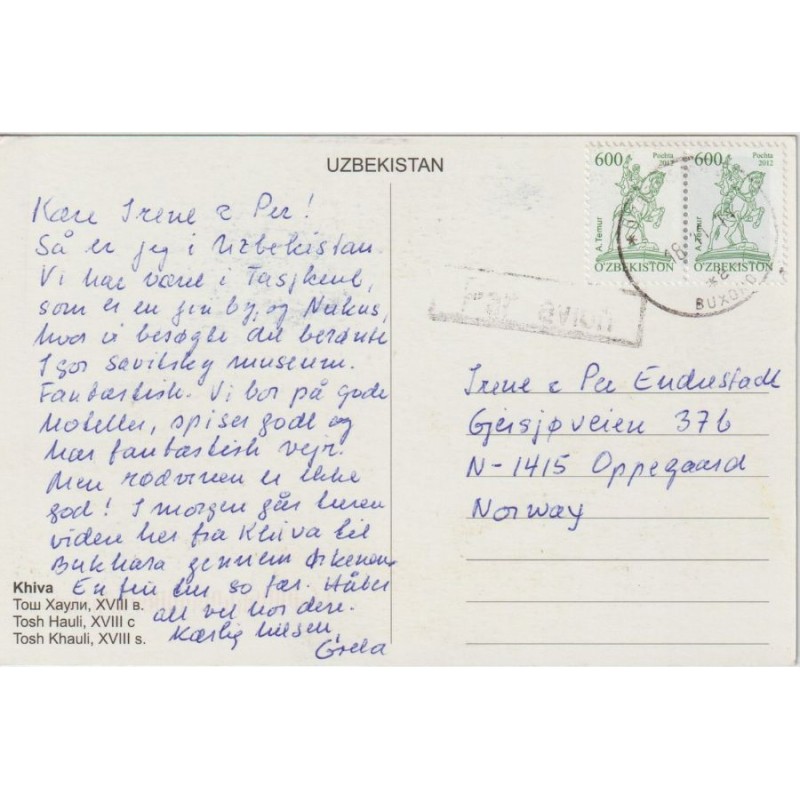 UZBEKISTAN
600
Pochta
2012
A. Temur
O'ZBEKISTON
600
Pochta
2012
A. Temur
O'ZBEKISTON
BUXORO
Kære Irene & Per!
Så er jeg i Uzbekistan.
Vi har været i Tasjkent,
som er en fin by, og Nukus,
hvor vi besøgte det berømte
Igor Savitsky museum.
Fantastisk. Vi bor på gode
hoteller, spiser godt og
har fantastisk vejr.
Men rødvinen er ikke
god! I morgen går turen
viden her fra Khiva til
Bukhara gennem ørkenen
En fin tur so far. Håber
alt vel hos dere.
Kærlig hilsen,
Greta
Irene & Per Endrestadt
Gjersjøveien 37b
N-1415 Oppegaard
Norway
Khiva
Тош Хаули, XVIII в.
Tosh Hauli, XVIII c
Tosh Khauli, XVIII s.